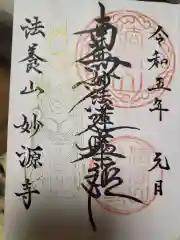 令和五年 元月
南無妙法蓮華経
法養山 妙源寺